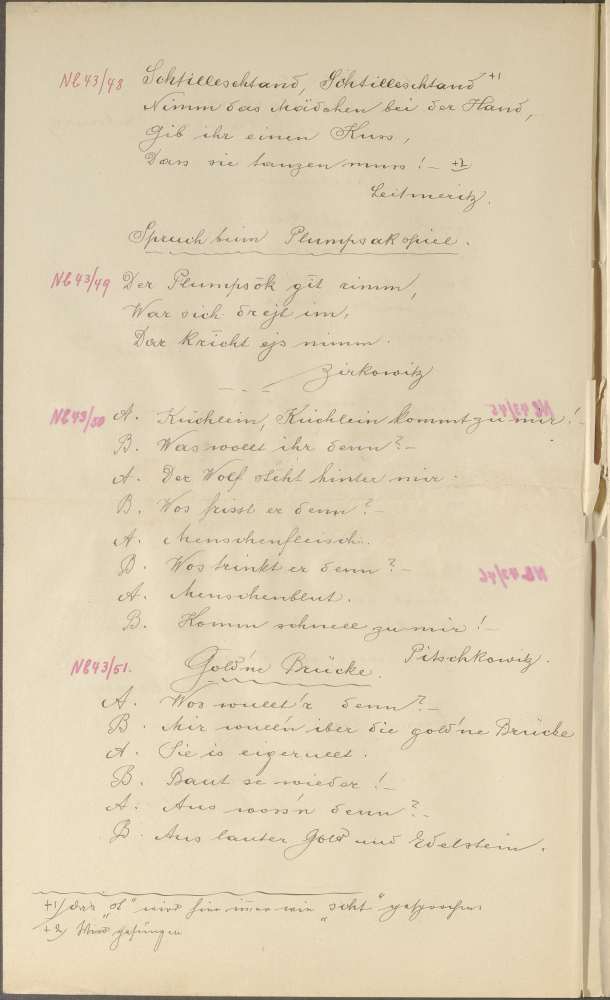 Nb 43/48 Schtilleschtand, Schtilleschtand +1
Nimm das Mädchen bei der Hand,
Gib ihr einen Kuss,
Dass sie tanzen muss! – +2
Leitmeritz.
Spruch beim Plumpsakspiel.
Nb 43/49 Der Plumpsŏk gīt rimm,
War sich drejt im,
Dar kricht ejs nimm.
Zirkowitz
Nb 43/50 A. Küchlein, Küchlein kommt zu mir! –
B. Was wollt ihr denn? –
A. Der Wolf steht hinter mir.
B. Wos frisst er denn? –
A. Menschenfleisch.
B. Wos trinkt er denn? –
A. Menschenblut.
B. Komm schnell zu mir! –
Pitschkowitz.
Nb 43/51. Gold'ne Brücke.
A. Wos wullt'r denn? –
B. Mir wull'n iber die gold'ne Brücke
A. Sie is eigerullt.
B. Baut se wieder! –
A. Aus woss'n denn? –
B. Aus lauter Gold und Edelstein.
+1) das „st" wird hier immer wie „scht" gesprochen
+2) Wird gesungen